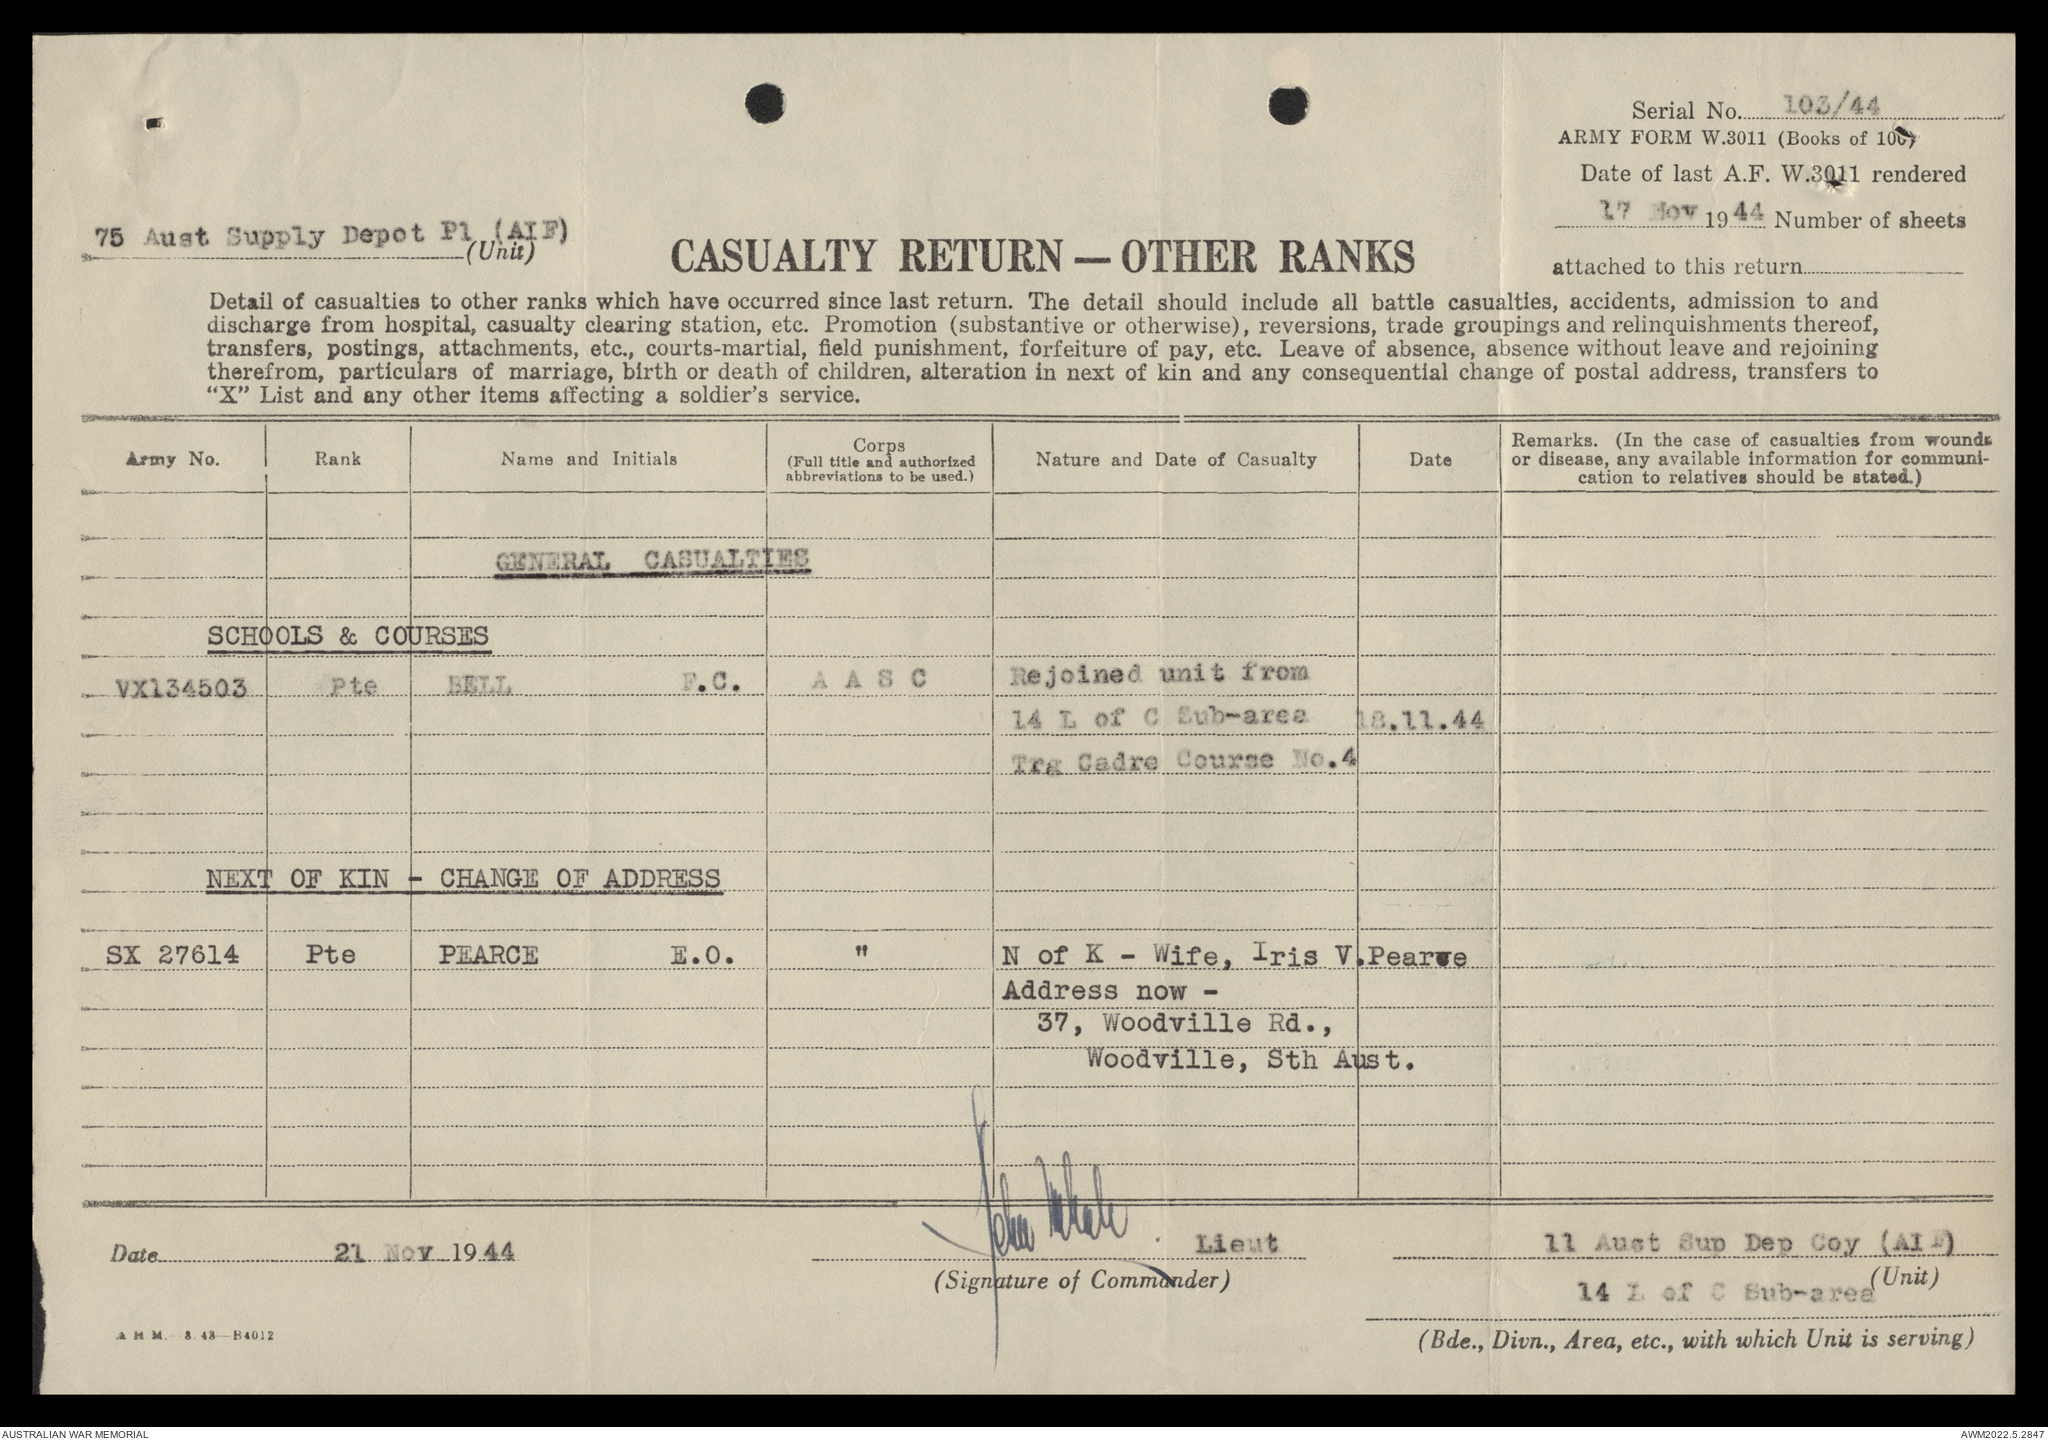 Serial No. 103/44
ARMY FORM W.3011 (Books of 100)
Date of last A.F. W.3011 rendered
17 Nov 1944 Number of sheets
attached to this return
75 Aust Supply Depot Pl (AIF)
(Unit)
CASUALTY RETURN — OTHER RANKS
Detail of casualties to other ranks which have occurred since last return. The detail should include all battle casualties, accidents, admission to and
discharge from hospital, casualty clearing station, etc. Promotion (substantive or otherwise), reversions, trade groupings and relinquishments thereof,
transfers, postings, attachments, etc., courts-martial, field punishment, forfeiture of pay, etc. Leave of absence, absence without leave and rejoining
therefrom, particulars of marriage, birth or death of children, alteration in next of kin and any consequential change of postal address, transfers to
“X” List and any other items affecting a soldier's service.
Army No. Rank Name and Initials Corps (Full title and authorized abbreviations to be used.) Nature and Date of Casualty Date Remarks. (In the case of casualties from wounds
or disease, any available information for communi-
cation to relatives should be stated.)
GENERAL CASUALTIES
SCHOOLS & COURSES
VX134503 Pte BELL F.C. A A S C Rejoined unit from
14 L of C Sub-area 18.11.44
Trg Cadre Course No.4
NEXT OF KIN - CHANGE OF ADDRESS
SX 27614 Pte PEARCE E.O. " N of K - Wife, Iris V.Pearce
Address now -
37, Woodville Rd.,
Woodville, Sth Aust.
Date 21 Nov 1944 John Lieut 11 Aust Sup Dep Coy (AIF)
(Signature of Commander) (Unit)
14 L of C Sub-area
(Bde., Divn., Area, etc., with which Unit is serving)
A H M.— 8.43—H4012
AUSTRALIAN WAR MEMORIAL AWM2022.5.2847